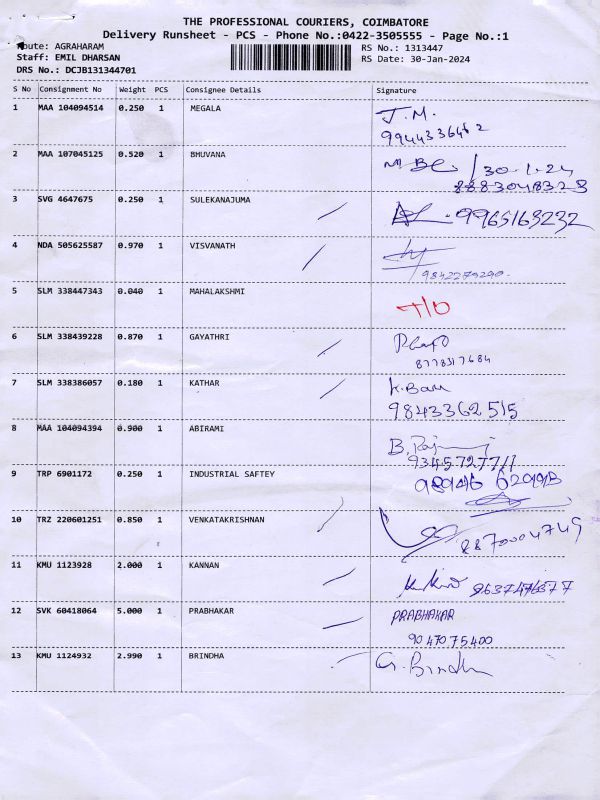 THE PROFESSIONAL COURIERS, COIMBATORE
Delivery Runsheet - PCS - Phone No.:0422-3505555 - Page No.:1
Route: AGRAHARAM RS No.: 1313447
Staff: EMIL DHARSAN RS Date: 30-Jan-2024
DRS No.: DCJB131344701
S No Consignment No Weight PCS Consignee Details Signature
1 MAA 104094514 0.250 1 MEGALA J.M.
9944336462
2 MAA 107045125 0.520 1 BHUVANA 30-1-24
8883048328
3 SVG 4647675 0.250 1 SULEKANAJUMA 9965163232
4 NDA 505625587 0.970 1 VISVANATH
9842279290
5 SLM 338447343 0.040 1 MAHALAKSHMI T/O
6 SLM 338439228 0.870 1 GAYATHRI
8778317684
7 SLM 338386057 0.180 1 KATHAR K.Bam
9843362515
8 MAA 104094394 0.900 1 ABIRAMI B.
9345727711
9 TRP 6901172 0.250 1 INDUSTRIAL SAFTEY
10 TRZ 220601251 0.850 1 VENKATAKRISHNAN 8870004749
11 KMU 1123928 2.000 1 KANNAN
12 SVK 60418064 5.000 1 PRABHAKAR PRABHAKAR
9047075400
13 KMU 1124932 2.990 1 BRINDHA G. Brindha